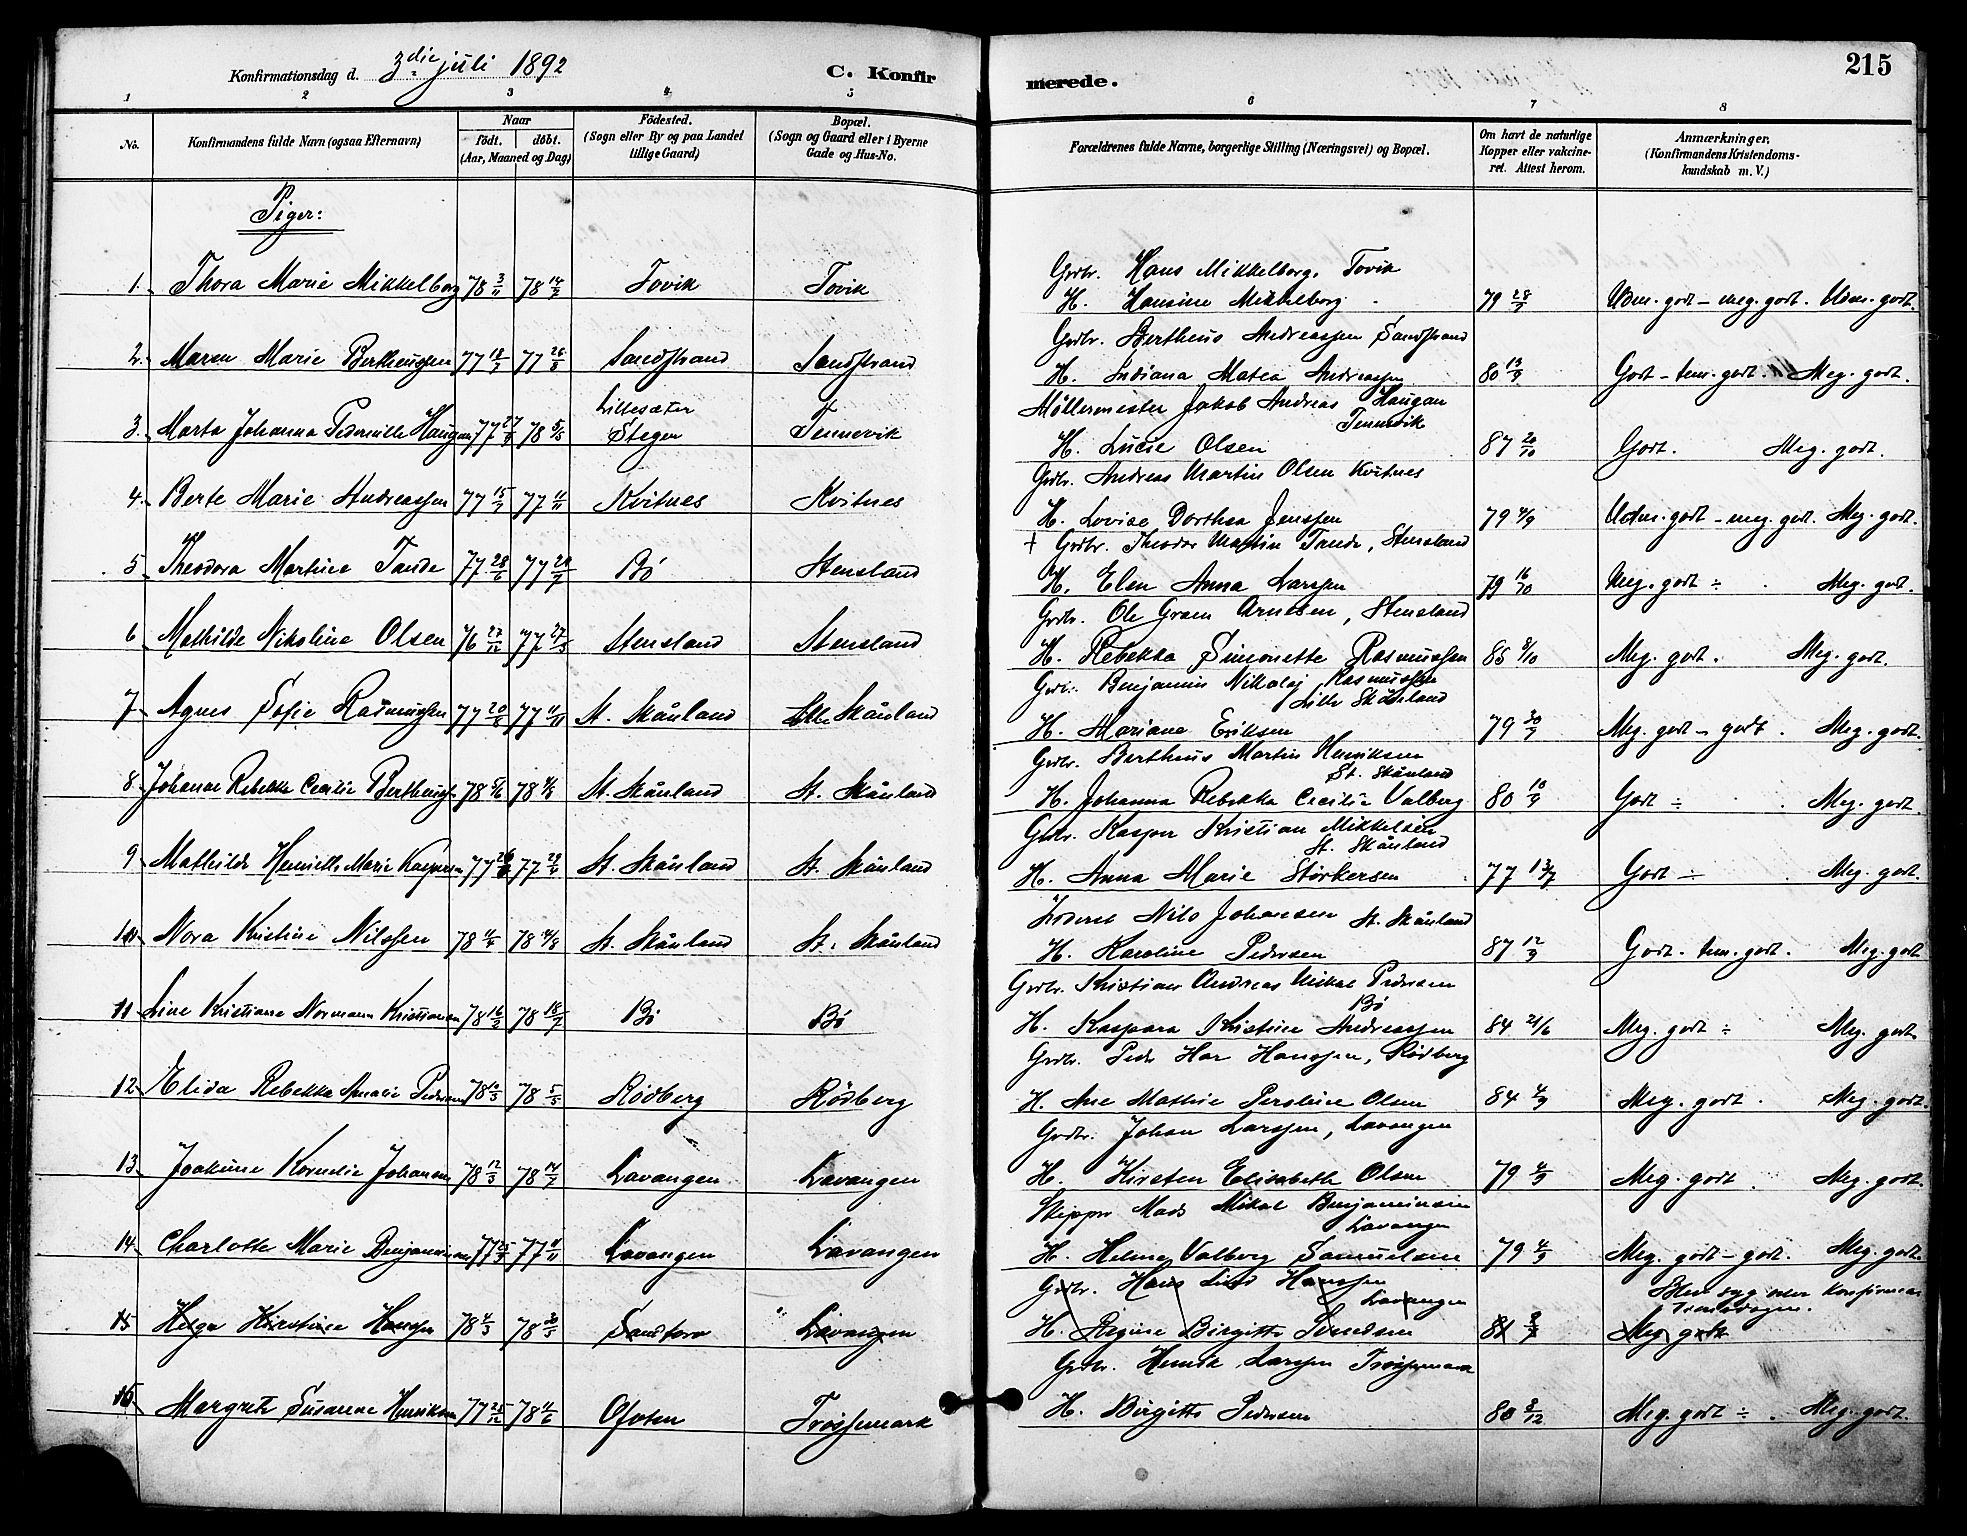 Konfirmationsdag d. 3die juli 1892
C. Konfirmerede.
215
1 2 3 4 5 6 7 8
No. Konfirmandens fulde Navn (ogsaa Efternavn) Naar født. døbt. (Aar, Maaned og Dag) Fødested. (Sogn eller By og paa Landet tillige Gaard) Bopæl. (Sogn og Gaard eller i Byerne Gade og Hus-No.
Forældrenes fulde Navne, borgerlige Stilling (Næringsvei) og Bopæl. Om havt de naturlige Kopper eller vakcineret. Attest herom. Anmærkninger, (Konfirmandens Kristendomskundskab m. V.)
Piger:
Grdbr. Hans Mikkelborg. Tovik
1. Thora Marie Mikkelborg 78 3/11 78 14/7 Tovik Tovik H. Hansine Mikkelborg 79 28/9 Udm. godt - meg. godt. Udm. godt.
Grdbr. Bertheus Andreassen Sandstrand
2. Maren Marie Bertheussen 77 18/7 77 26/8 Sandstrand Sandstrand H. Indiana Matea Andreassen 80 13/9 Godt - tem. godt. Meg. godt.
Lillesæter Møllermester Jakob Andreas Haugan Tennevik
3. Marta Johanna Pedernille Haugan 77 27/9 78 5/5 Stegen Tennevik H. Lucie Olsen 87 20/10 Godt. Meg. godt.
Grdbr. Andreas Martin Olsen Kvitnes
4. Berte Marie Andreassen 77 15/7 77 11/11 Kvitnes Kvitnes H. Lovise Dorthea Jenssen 79 4/9 Udm. godt - meg. godt. Meg. godt.
+ Grdbr. Theodor Martin Tande, Stensland
5 Theodora Martine Tande 77 28/6 77 29/7 Bö Stensland H. Elen Anna Larssen 79 16/10 Meg. godt ÷ Meg. godt.
Grdbr. Ole Gram Arnesen, Stensland
6 Mathilde Nikoline Olsen 76 27/12 77 27/5 Stensland Stensland H. Rebekka Simonette Rasmussen 85 8/10 Meg. godt. Meg. godt.
Grdbr. Benjamin Nikolaj Rasmussen Lille Skånland
7 Agnes Sofie Rasmussen 77 20/8 77 11/11 St. Skånland Lille Skånland H. Mariane Eriksen 79 30/9 Meg. godt - godt. Meg. godt.
Grdbr. Bertheus Martin Henriksen St. Skånland
8 Johanne Rebekka Cecilie Bertheussen 78 5/6 78 4/8 St. Skånland St. Skånland H. Johanna Rebekka Cecilie Valberg 80 10/9 Godt ÷ Meg. godt.
Grdbr. Kasper Kristian Mikkelsen St. Skånland
9 Mathilde Henriette Marie Kaspersen 77 77 29/4 St. Skånland St. Skånland H. Anna Marie Størkersen 77 13/7 Godt ÷ Meg. godt.
Inderst Nils Johansen St. Skånland
10 Nora Kristine Nilssen 78 11/4 78 4/8 St. Skånland St. Skånland H. Karoline Pedersen 87 12/9 Godt. tem. godt. Meg. godt
Grdbr. Kristian Andreas Mikal Pedersen Bö
11 Line Kristiane Normann Kristiansen 78 16/2 78 18/7 Bö Bö H. Kaspara Kristine Andreassen 84 21/6 Meg. godt ÷ Meg. godt.
Grdbr. Peder Har Hanssen, Rödberg
12 Elida Rebekka Amalie Pedersen 78 10/3 78 5/5 Rödberg Rödberg H. Ane Mathie Pernline Olsen 84 4/9 Meg. godt. Meg. godt.
Grdbr. Johan Larssen, Lavangen
13 Joakime Kornelie Johansen 78 12/3 78 14/7 Lavangen Lavangen H. Kirsten Elisabeth Olsen 79 4/9 Meg. godt. Meg. godt.
Skipper Mads Mikal Benjaminsen Lavangen
14 Charlotte Marie Benjaminsen 77 25/9 77 11/11 Lavangen Lavangen H. Helene Valborg Samuelsen 79 4/9 Meg. godt - godt. Meg. godt.
Grdbr. Hans Lind Hanssen Lavangen Blev syg inden Konfirmationsdagen.
15 Helga Kirstine Hanssen 78 4/3 78 30/5 Sandtorv Lavangen H. Regine Birgitte Svendsen 81 Meg. godt
Grdbr. Henrik Larssen Trøssemark
16 Margrete Susanne Henriksen 77 25/12 78 11/6 Ofoten Trøssemark H. Birgitte Pedersen 80 3/12 Meg. godt ÷. Meg. godt.